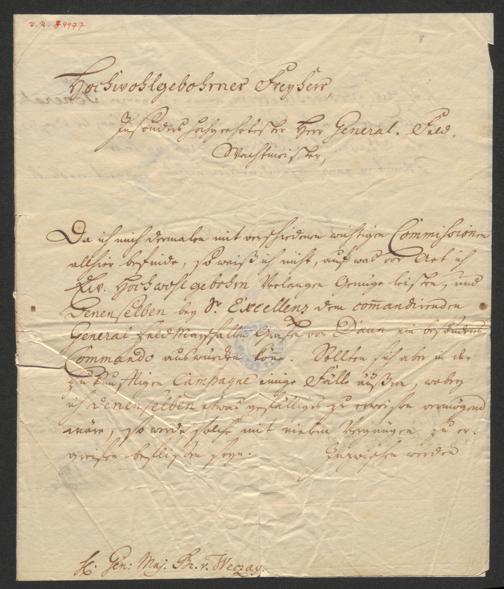 Hochwohlgebohrner Freyherr
Insonders hochgeehrtester Herr General-Feld-
Wachtmeister,
Da ich mich dermalen mit verschiedenen wichtigen Commissionen
allhier befinde, so weiß ich nicht, auf was vor Art ich
Eur. Hochwohlgebohrn Verlangen Genüge leisten, und
Denenselben bey Sr. Excellenz dem comandirenden
General Feld Marschallen Grafen von Daun ein
Commando auswürken könne. Sollten sich aber in der
zukünfftigen Campagne einige Fälle äußern, wobey
ich denenselben etwas gefälliges zu erweisen vermögend
wäre, so werde solche mit vielen Vergnügen zu er-
greifen beflissen seyn. Inzwischen werden
H: Gen: Maj. Br. v. Weczay.